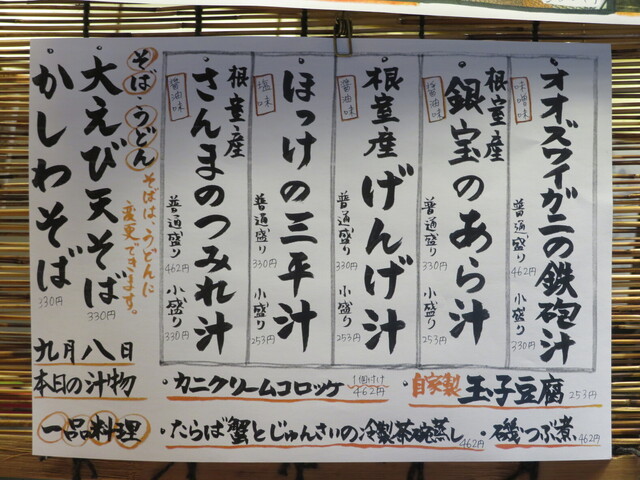 オオズワイガニの鉄砲汁
味噌味
普通盛り 462円 小盛り 330円
根室産
銀宝のあら汁
醤油味
普通盛り 330円 小盛り 253円
根室産げんげ汁
醤油味
普通盛り 330円 小盛り 253円
ほっけの三平汁
塩味
普通盛り 330円 小盛り 253円
根室産
さんまのつみれ汁
醤油味
普通盛り 462円 小盛り 330円
そば うどん
そばは、うどんに
変更できます。
大えび天そば 330円
かしわそば 330円
九月八日
本日の汁物
・カニクリームコロッケ 1個付け 462円
・自家製 玉子豆腐 253円
一品料理
・たらば蟹とじゅんさいの冷製茶碗蒸し 462円
・磯つぶ煮 462円